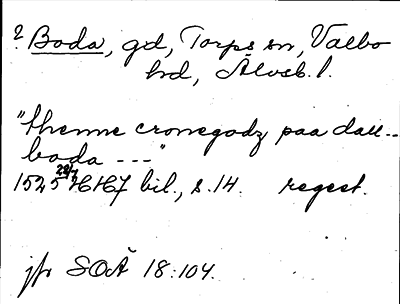 ? Boda, gd, Torps sn, Valbo
hd, Älvsb. l.
"thenne cronegodz paa dall--
boda ---"
1525 28/7 HH7 bil., s. 14. regest.
jfr SOÄ 18:104.